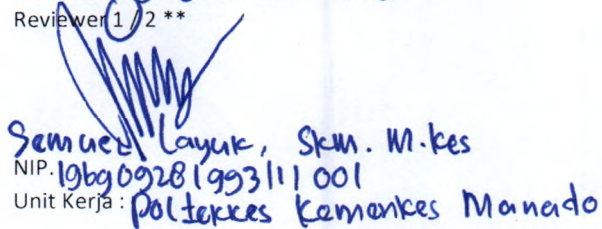 Reviewer 1 / 2 **
Samuel Layuk, Skm. M.kes
NIP. 196909281993111001
Unit Kerja : Poltekkes Kemenkes Manado